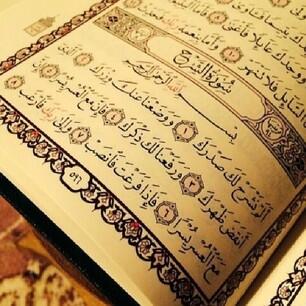 وَجَدَكَ عَآئِلًا فَأَغْنَىٰ
فَلَا تَنْهَرْ ١٠ وَأَمَّا بِنِعْمَةِ
سُورَةُ الشَّرْحِ
بِسْمِ اللَّهِ الرَّحْمَٰنِ الرَّحِيمِ
أَلَمْ نَشْرَحْ لَكَ صَدْرَكَ ١ وَوَضَعْنَا عَنكَ وِزْرَكَ ٢ الَّذِي
أَنقَضَ ظَهْرَكَ ٣ وَرَفَعْنَا لَكَ ذِكْرَكَ ٤ فَإِنَّ مَعَ الْعُسْرِ يُسْرًا ٥ إِنَّ
مَعَ الْعُسْرِ يُسْرًا ٦ فَإِذَا فَرَغْتَ فَانصَبْ ٧ وَإِلَىٰ رَبِّكَ فَارْغَب ٨
٥٩٦